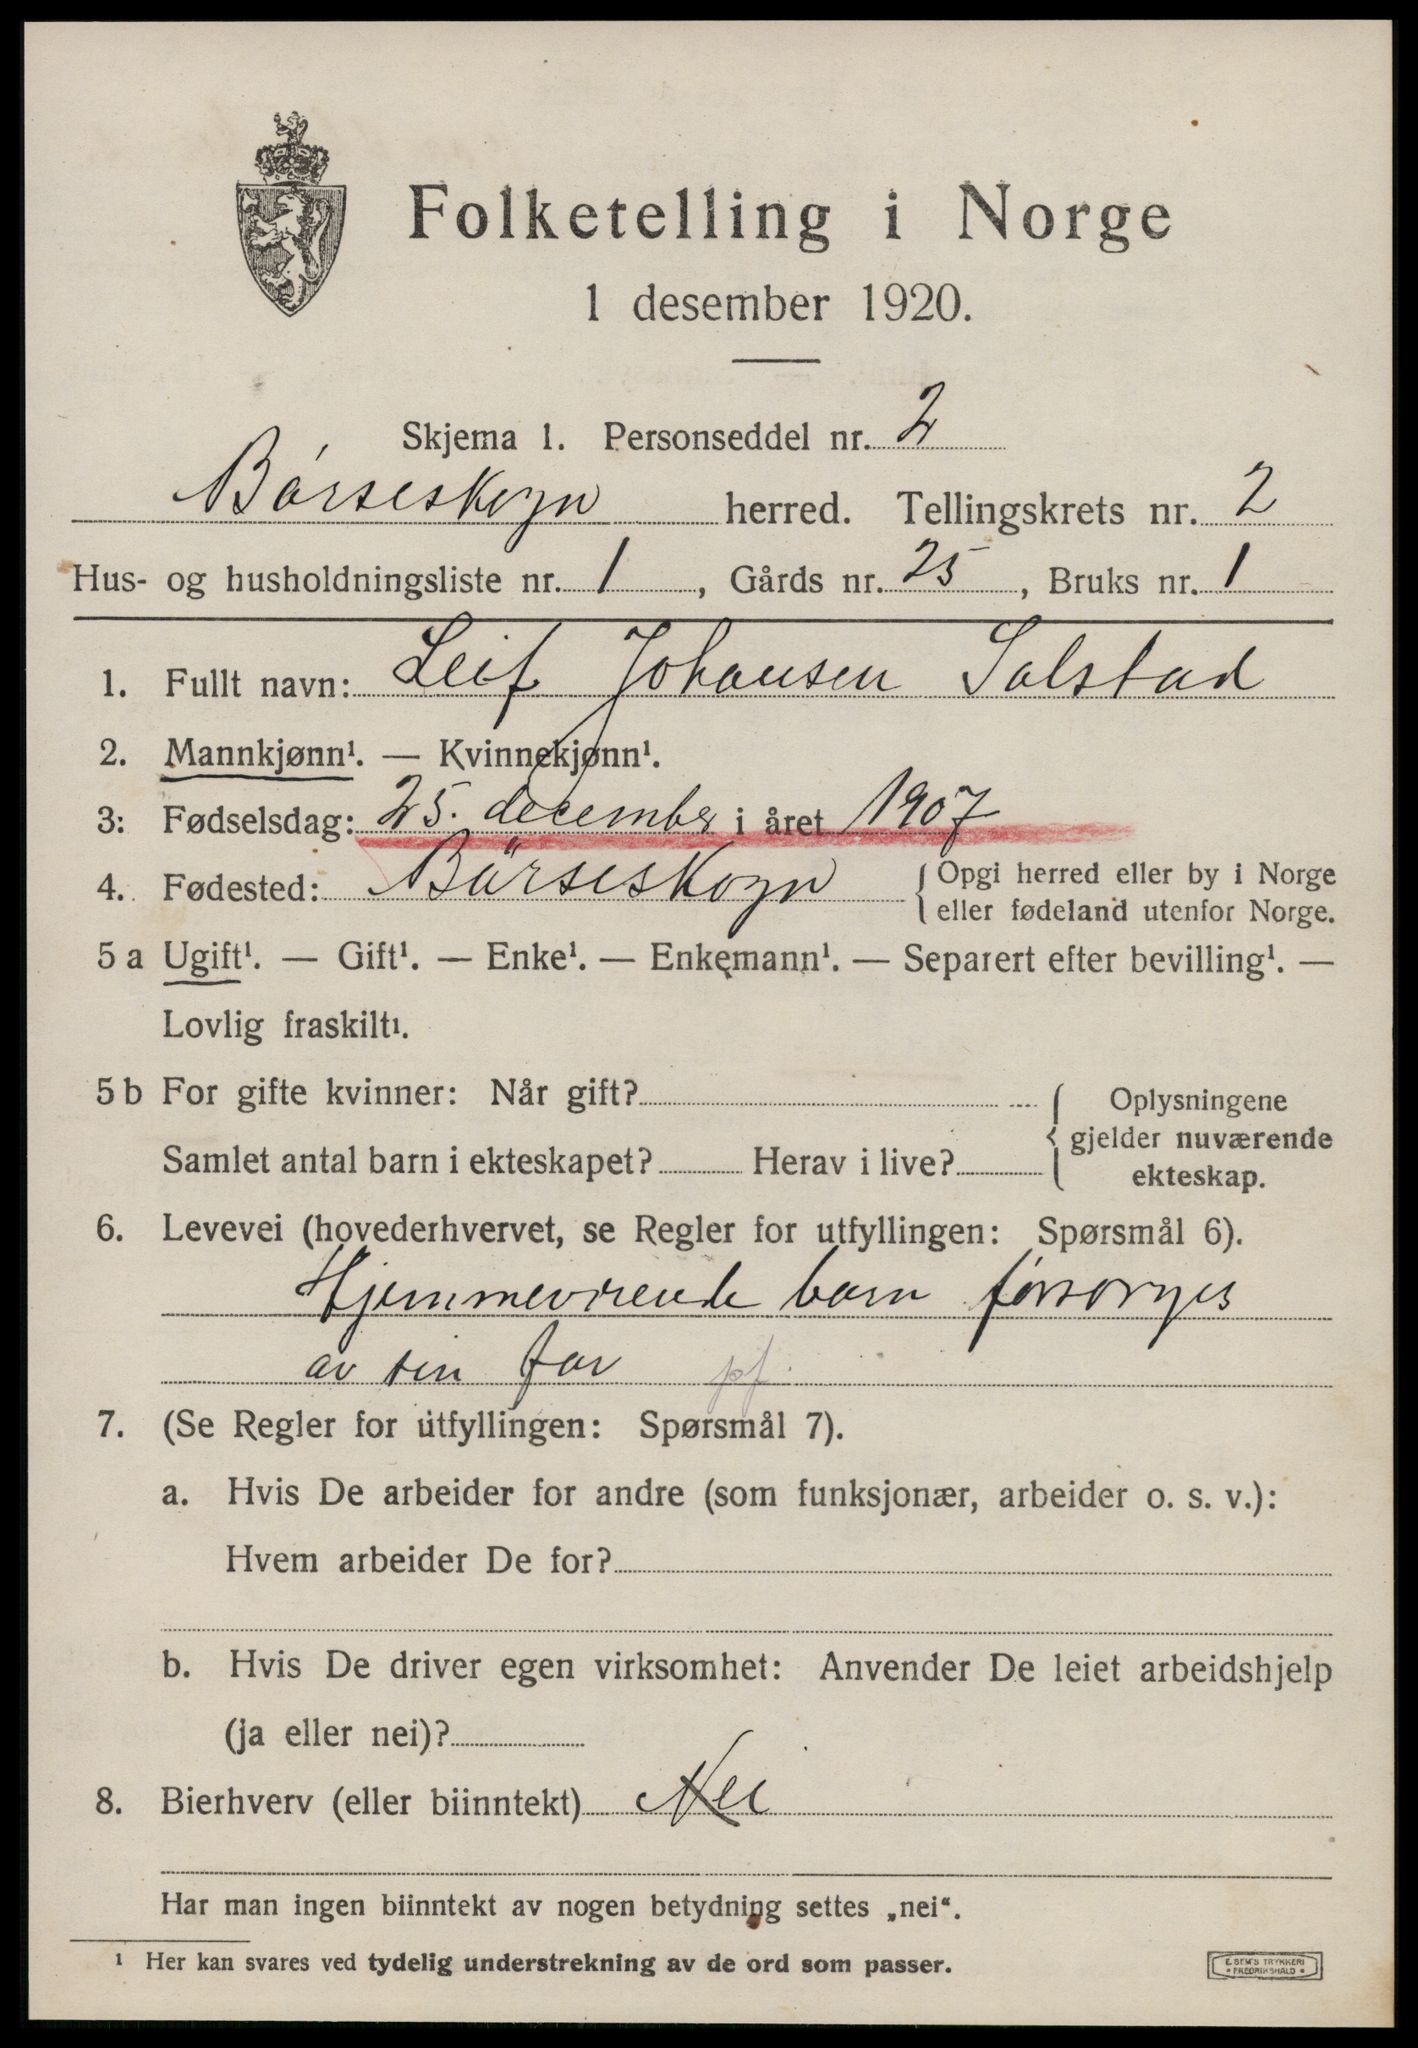 Folketelling i Norge
1 desember 1920.
Skjema 1. Personseddel nr. 2
Börseskogn herred. Tellingskrets nr. 2
Hus- og husholdningsliste nr. 1, Gårds nr. 25, Bruks nr. 1
1. Fullt navn: Leif Johansen Solstad
2. Mannkjønn¹. — Kvinnekjønn¹.
3: Fødselsdag: 25. december i året 1907
4. Fødested: Börseskogn {Opgi herred eller by i Norge
eller fødeland utenfor Norge.
5 a Ugift¹. — Gift¹. — Enke¹. — Enkemann¹. — Separert efter bevilling¹. —
Lovlig fraskilt¹.
5 b For gifte kvinner: Når gift? Oplysningene
gjelder nuværende
Samlet antal barn i ekteskapet? Herav i live?
ekteskap.
6. Levevei (hovederhvervet, se Regler for utfyllingen: Spørsmål 6).
Hjemmeværende barn forsorges
av sin far pf.
7. (Se Regler for utfyllingen: Spørsmål 7).
a. Hvis De arbeider for andre (som funksjonær, arbeider o. s. v.):
Hvem arbeider De for?
b. Hvis De driver egen virksomhet: Anvender De leiet arbeidshjelp
(ja eller nei)?
8. Bierhverv (eller biinntekt) Nei
Har man ingen biinntekt av nogen betydning settes „nei“.
¹ Her kan svares ved tydelig understrekning av de ord som passer.
E. SEM'S TRYKKERI
* FREDRIKSHALD *